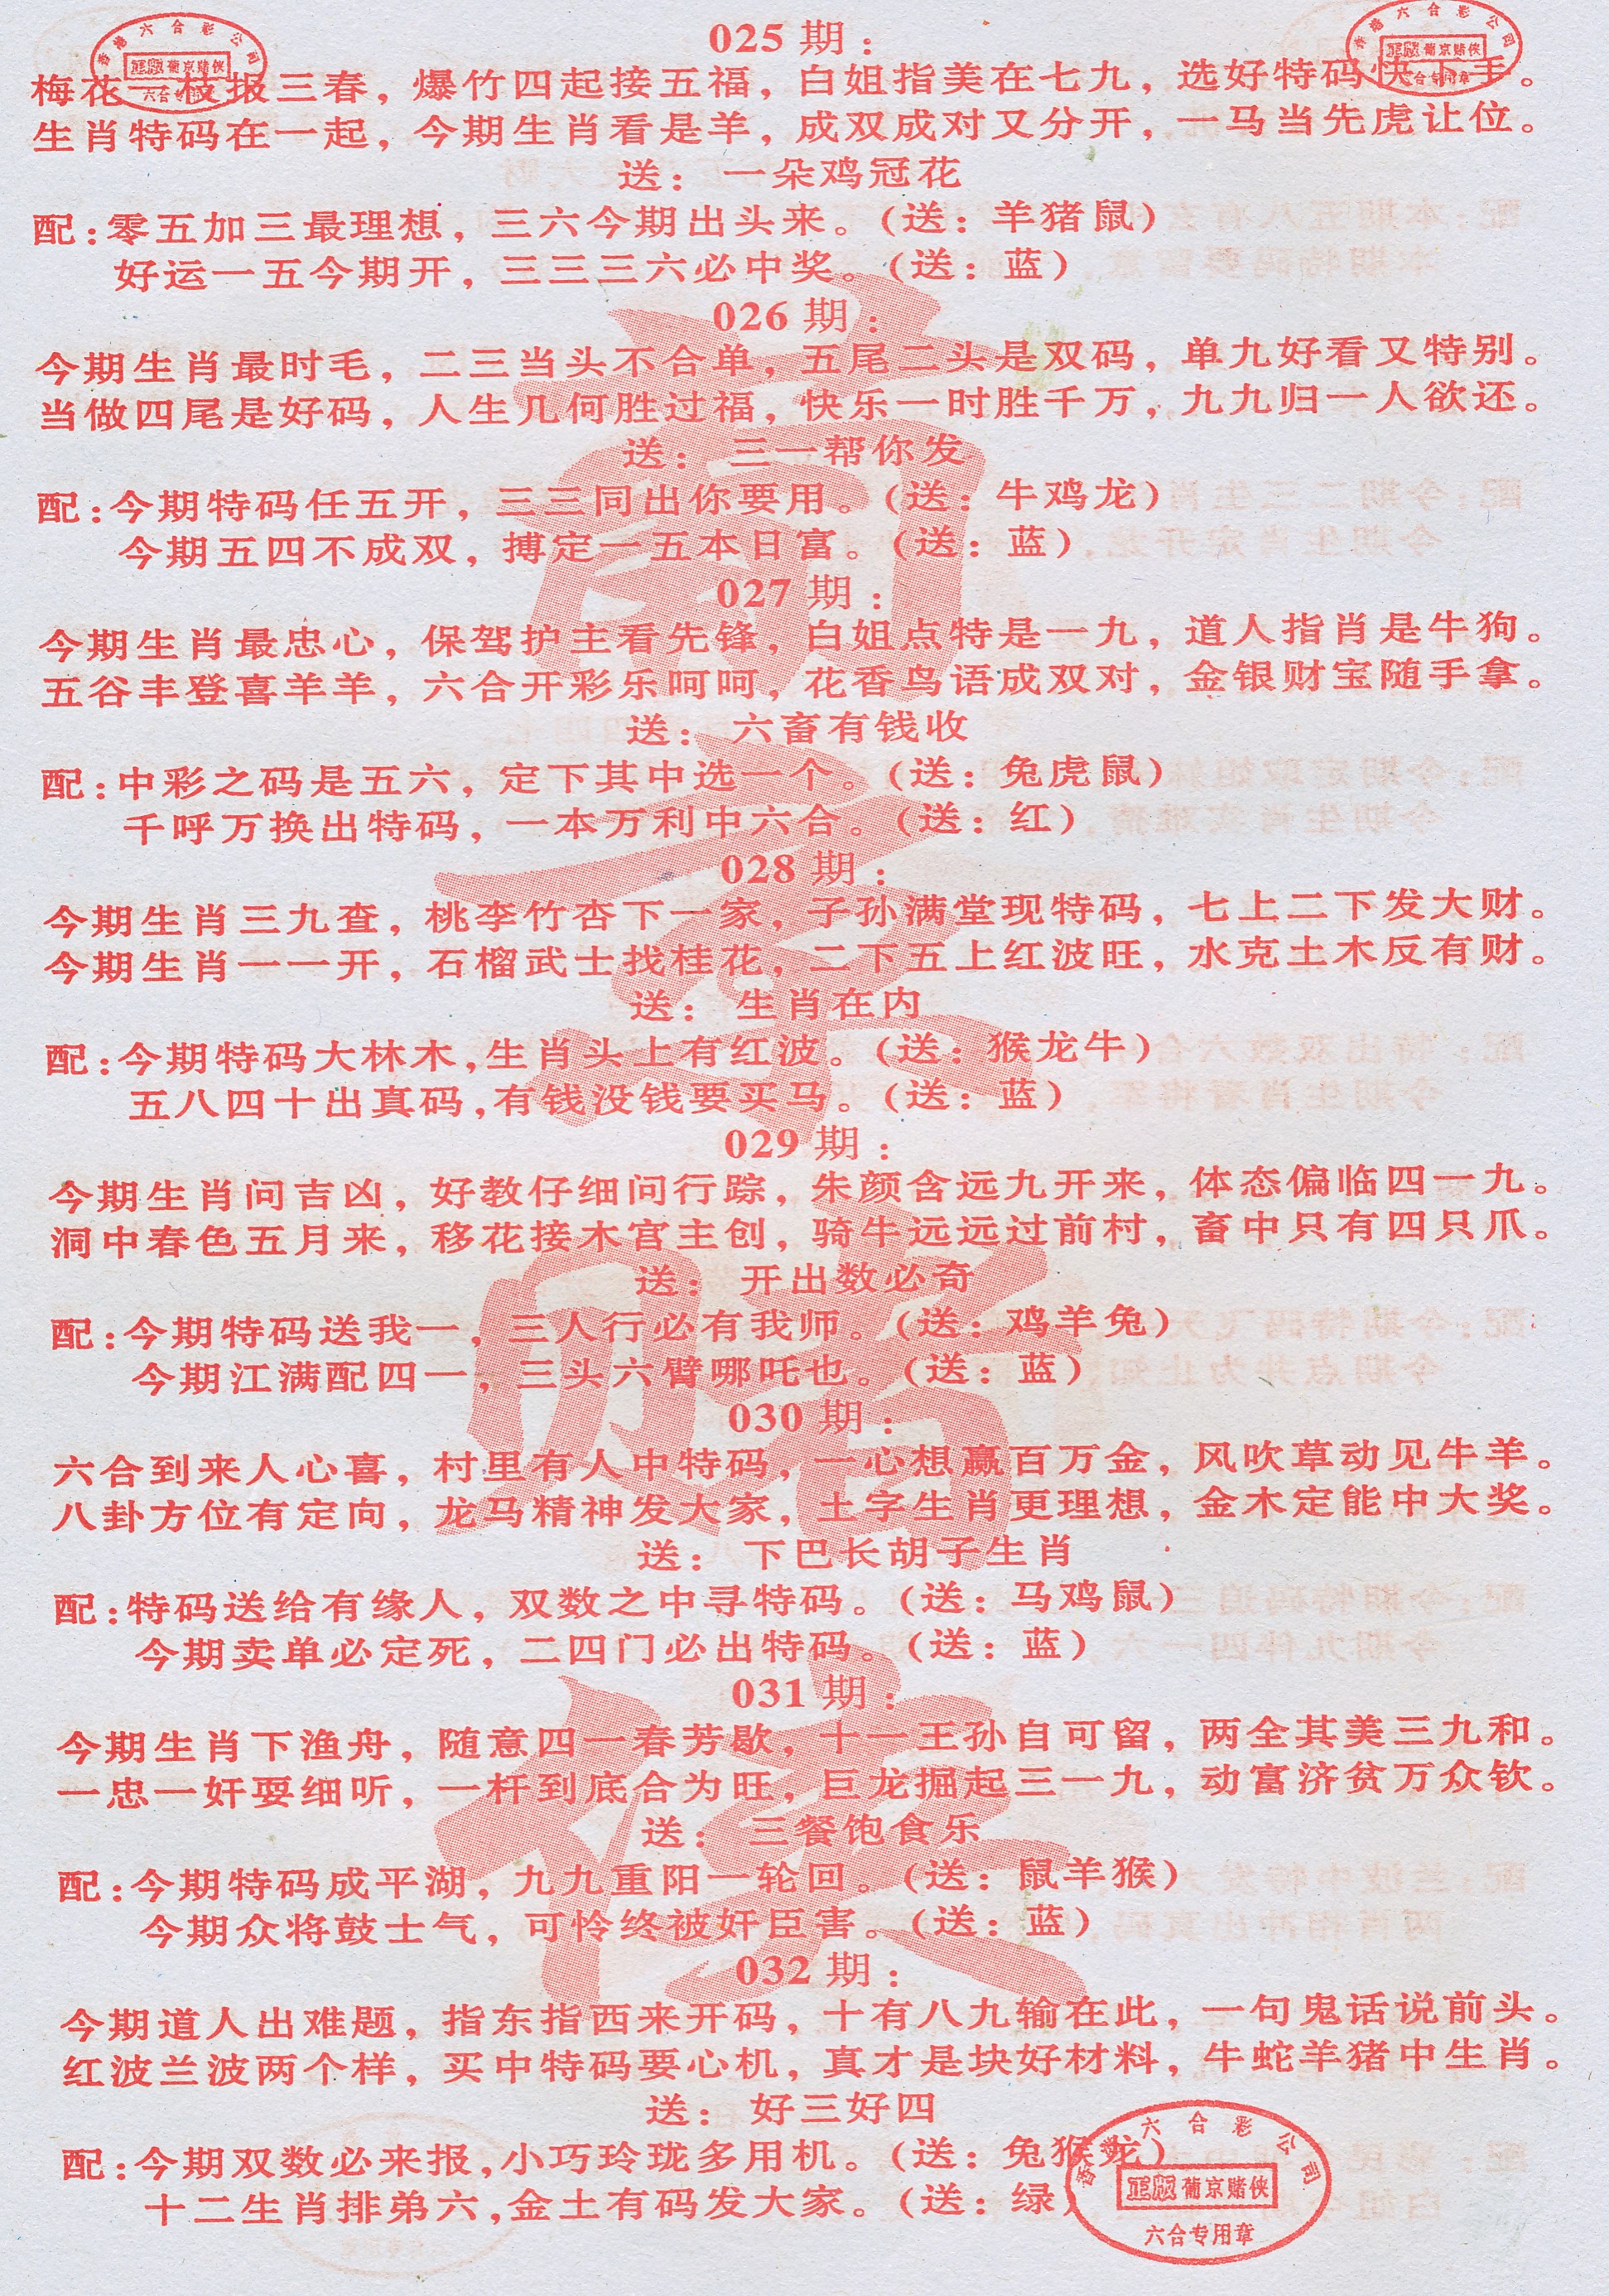 香港六合彩公司
正版葡京赌侠
六合专用章
香港六合彩公司
正版葡京赌侠
六合专用章
025期：
梅花一枝报三春，爆竹四起接五福，白姐指美在七九，选好特码快下手。
生肖特码在一起，今期生肖看是羊，成双成对又分开，一马当先虎让位。
送：一朵鸡冠花
配：零五加三最理想，三六今期出头来。（送：羊猪鼠）
好运一五今期开，三三三六必中奖。（送：蓝）
026期：
今期生肖最时毛，二三当头不合单，五尾二头是双码，单九好看又特别。
当做四尾是好码，人生几何胜过福，快乐一时胜千万，九九归一人欲还。
送：三一帮你发
配：今期特码任五开，三三同出你要用。（送：牛鸡龙）
今期五四不成双，搏定一五本日富。（送：蓝）
027期：
今期生肖最忠心，保驾护主看先锋，白姐点特是一九，道人指肖是牛狗。
五谷丰登喜羊羊，六合开彩乐呵呵，花香鸟语成双对，金银财宝随手拿。
送：六畜有钱收
配：中彩之码是五六，定下其中选一个。（送：兔虎鼠）
千呼万换出特码，一本万利中六合。（送：红）
028期：
今期生肖三九查，桃李竹杏下一家，子孙满堂现特码，七上二下发大财。
今期生肖一一开，石榴武士找桂花，二下五上红波旺，水克土木反有财。
送：生肖在内
配：今期特码大林木，生肖头上有红波。（送：猴龙牛）
五八四十出真码，有钱没钱要买马。（送：蓝）
029期：
今期生肖问吉凶，好教仔细问行踪，朱颜含远九开来，体态偏临四一九。
洞中春色五月来，移花接木宫主创，骑牛远远过前村，畜中只有四只爪。
送：开出数必奇
配：今期特码送我一，三人行必有我师。（送：鸡羊兔）
今期江满配四一，三头六臂哪吒也。（送：蓝）
030期：
六合到来人心喜，村里有人中特码，一心想赢百万金，风吹草动见牛羊。
八卦方位有定向，龙马精神发大家，土字生肖更理想，金木定能中大奖。
送：下巴长胡子生肖
配：特码送给有缘人，双数之中寻特码。（送：马鸡鼠）
今期卖单必定死，二四门必出特码。（送：蓝）
031期：
今期生肖下渔舟，随意四一春芳歇，十一王孙自可留，两全其美三九和。
一忠一奸耍细听，一杆到底合为旺，巨龙掘起三一九，动富济贫万众钦。
送：三餐饱食乐
配：今期特码成平湖，九九重阳一轮回。（送：鼠羊猴）
今期众将鼓士气，可怜终被奸臣害。（送：蓝）
032期：
今期道人出难题，指东指西来开码，十有八九输在此，一句鬼话说前头。
红波兰波两个样，买中特码要心机，真才是块好材料，牛蛇羊猪中生肖。
送：好三好四
配：今期双数必来报，小巧玲珑多用机。（送：兔猴龙）
十二生肖排弟六，金土有码发大家。（送：绿）
香港六合彩公司
正版葡京赌侠
六合专用章